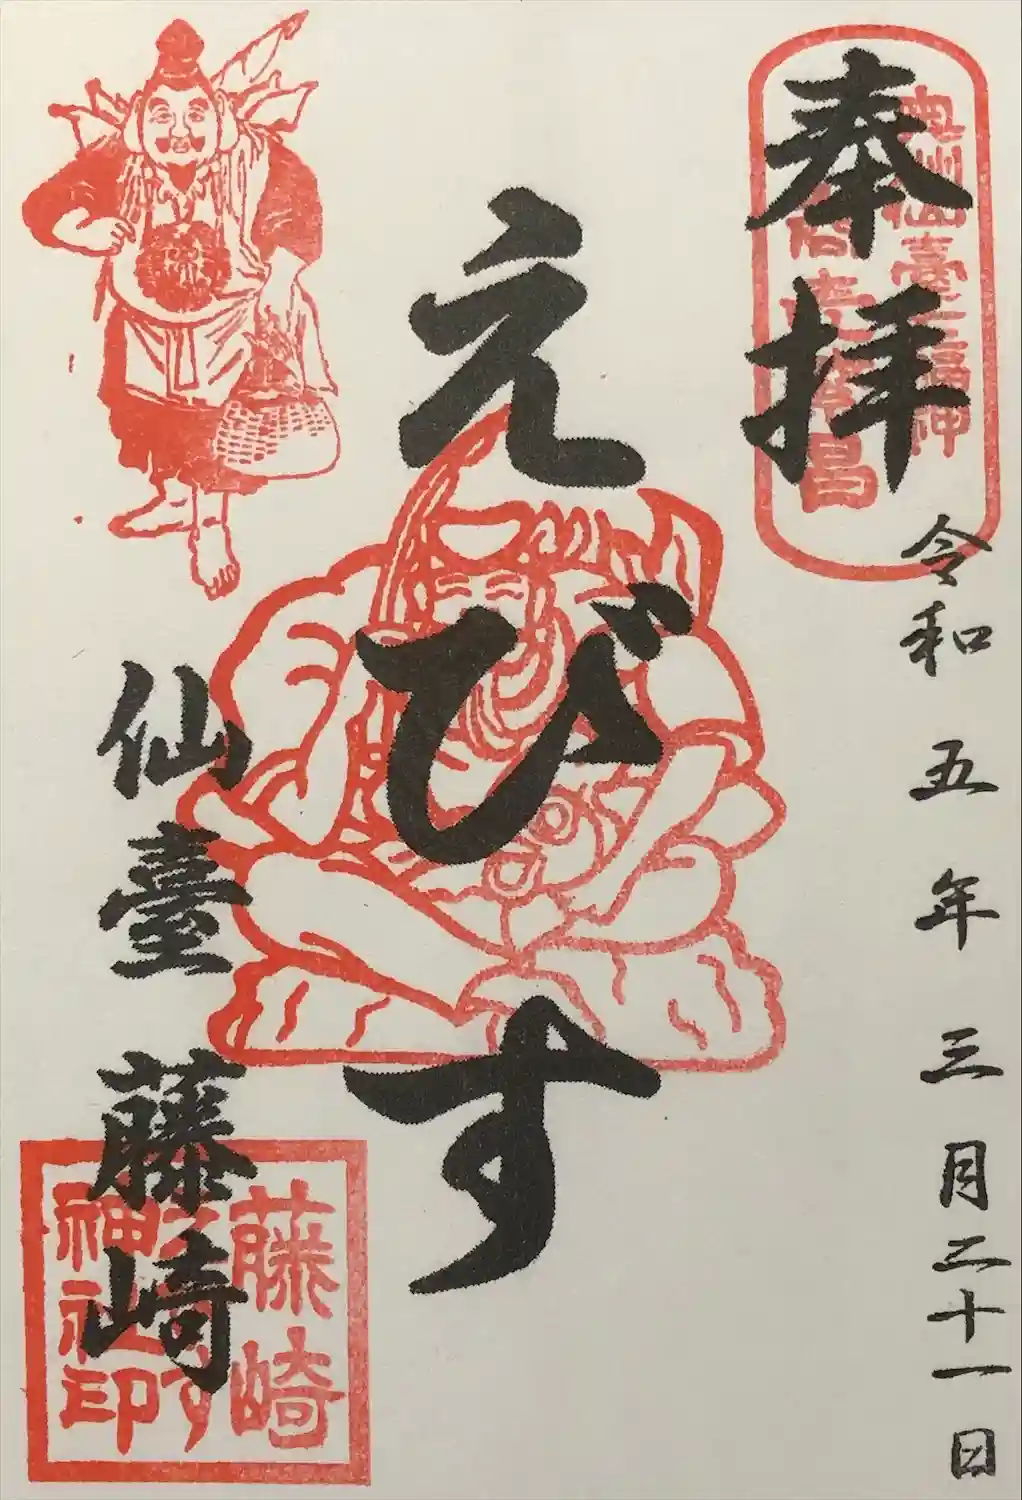 奉拝
奥州仙臺七福神
商売繁昌
令和五年三月二十一日
えびす
仙臺 藤崎
藤崎
えびす
神社印